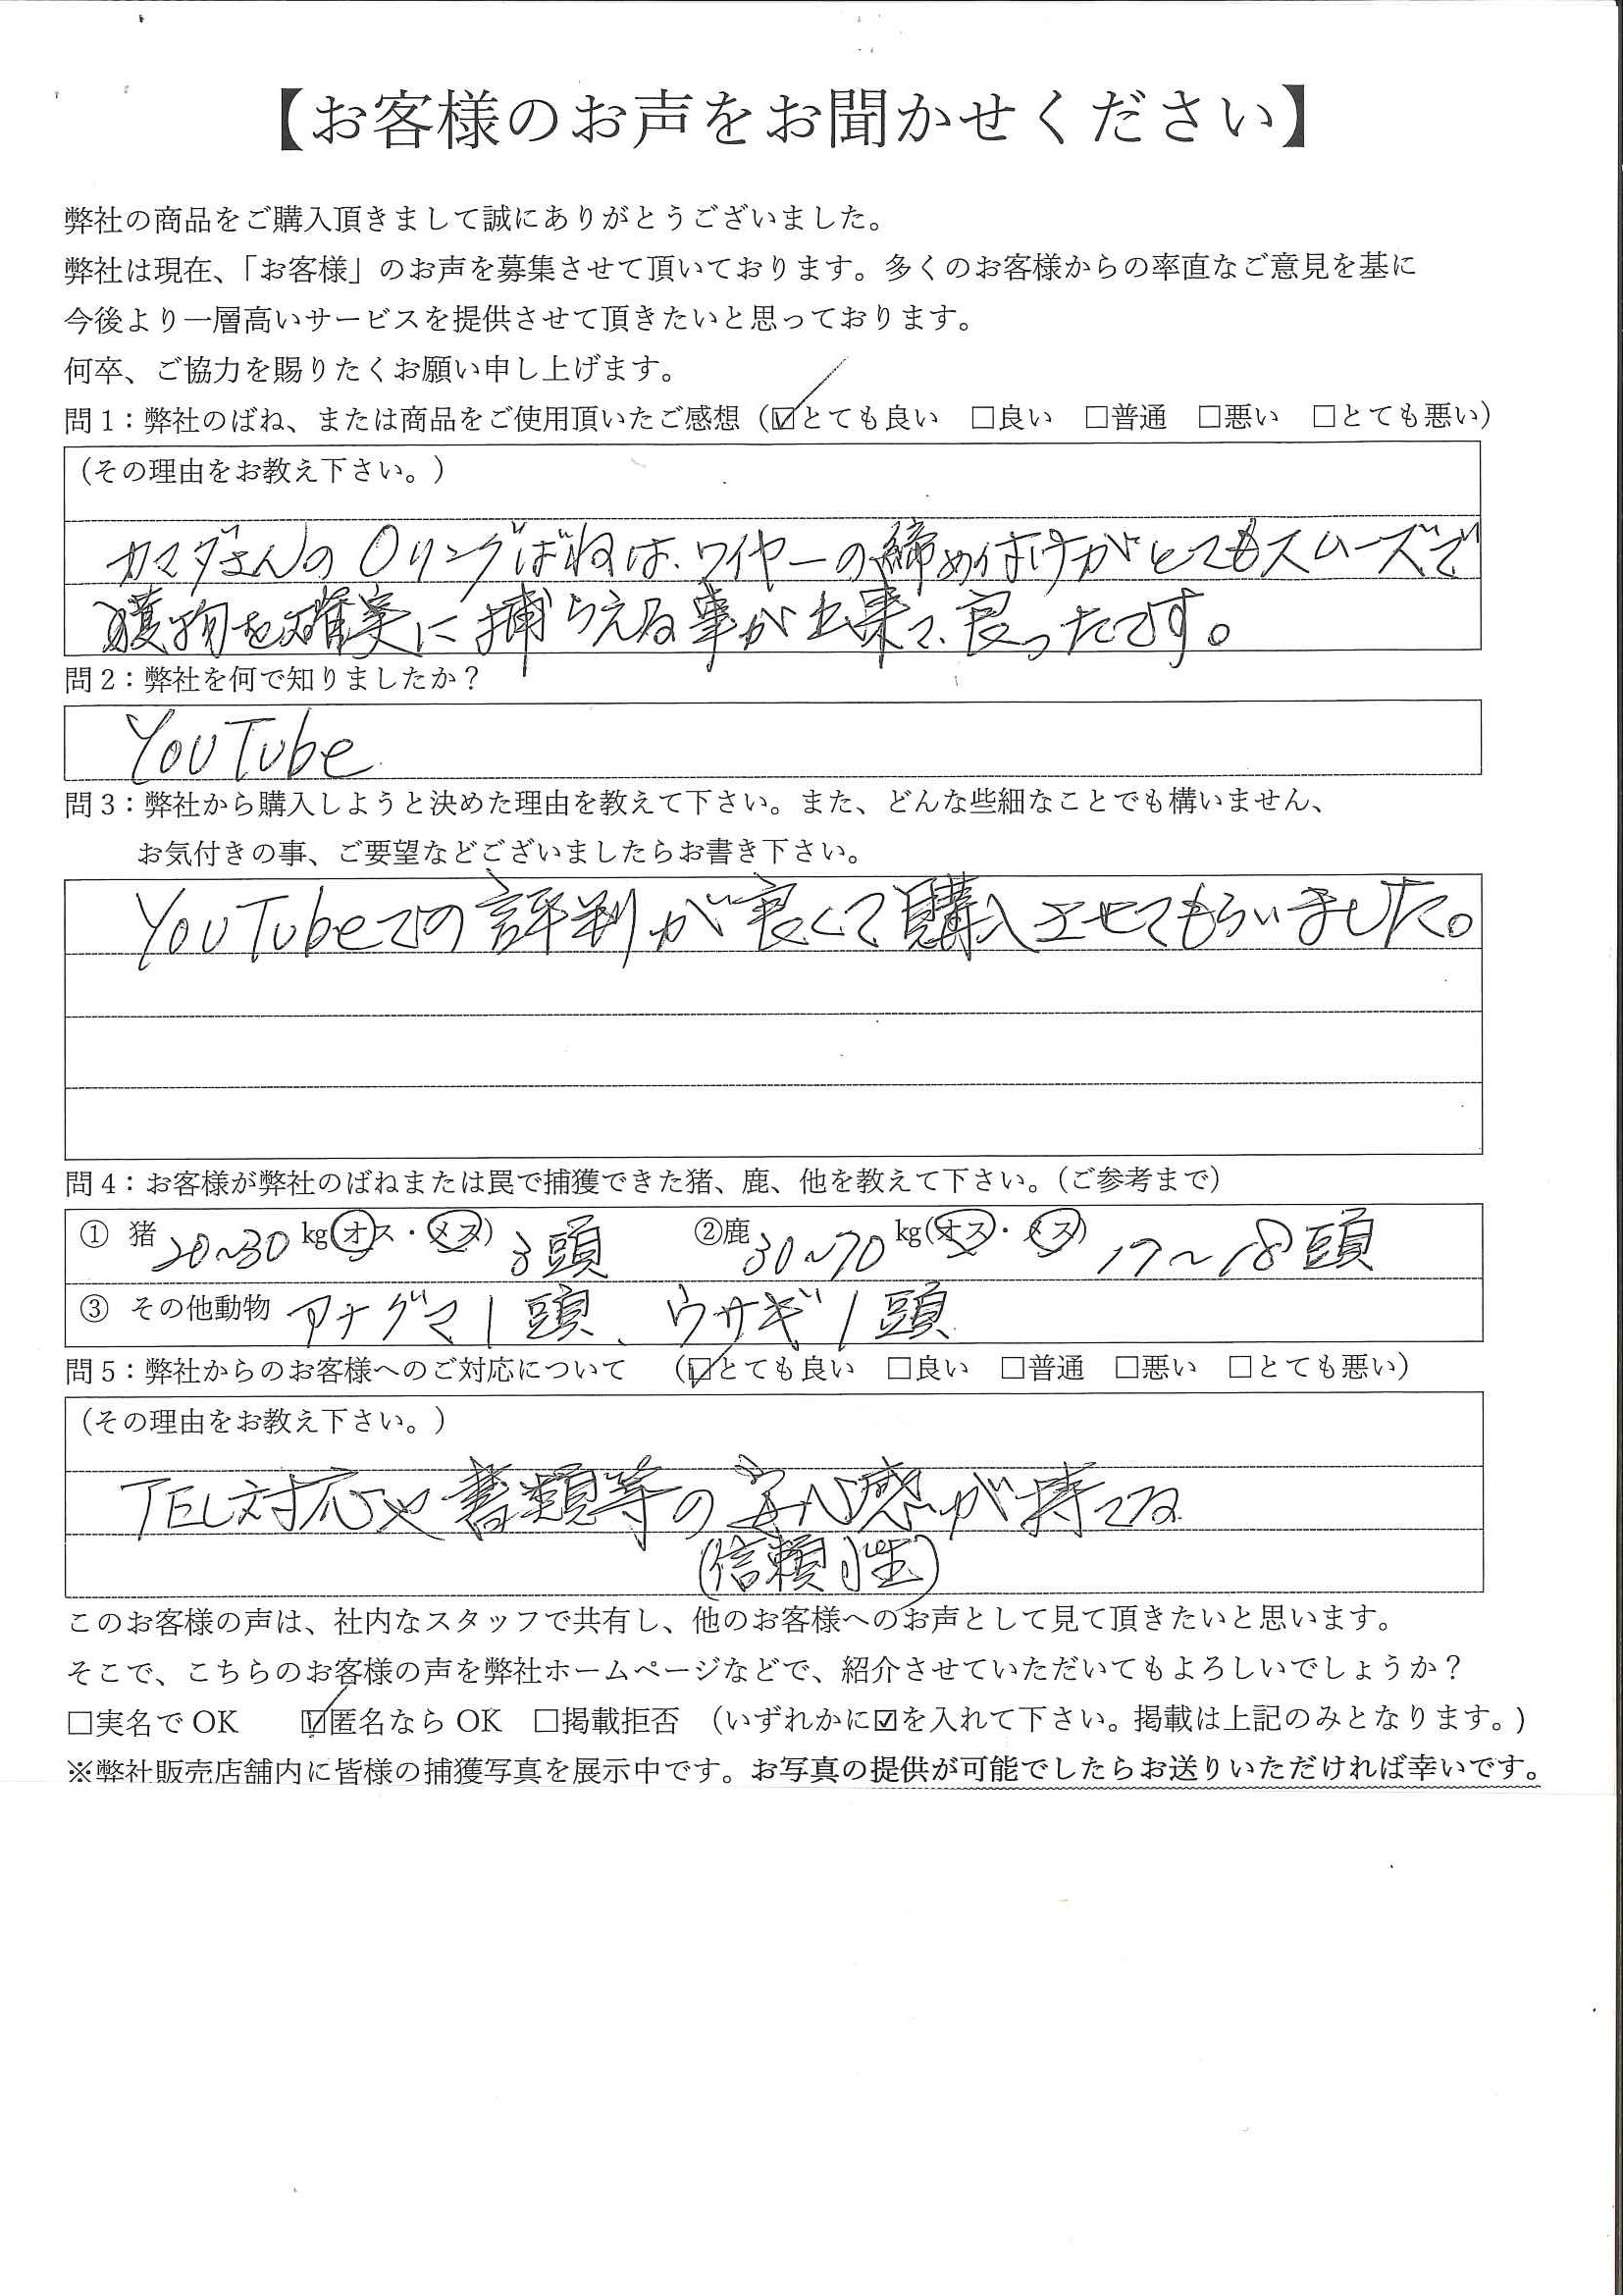 【お客様のお声をお聞かせください】
弊社の商品をご購入頂きまして誠にありがとうございました。
弊社は現在、「お客様」のお声を募集させて頂いております。多くのお客様からの率直なご意見を基に
今後より一層高いサービスを提供させて頂きたいと思っております。
何卒、ご協力を賜りたくお願い申し上げます。
問1：弊社のばね、または商品をご使用頂いたご感想（☑とても良い　□良い　□普通　□悪い　□とても悪い）
（その理由をお教え下さい。）
カマダさんのOリングばねは、ワイヤーの締め付けがとてもスムーズで
獲物を確実に捕らえる事が出来て、良ったです。
問2：弊社を何で知りましたか？
YouTube
問3：弊社から購入しようと決めた理由を教えて下さい。また、どんな些細なことでも構いません、
お気付きの事、ご要望などございましたらお書き下さい。
YouTubeでの評判が良くて購入させてもらいました。
問4：お客様が弊社のばねまたは罠で捕獲できた猪、鹿、他を教えて下さい。（ご参考まで）
① 猪 20～30 kg(オス・メス) 3頭　②鹿 30～70 kg(オス・メス) 17～18頭
③ その他動物 アナグマ1頭、ウサギ1頭
問5：弊社からのお客様へのご対応について　（☑とても良い　□良い　□普通　□悪い　□とても悪い）
（その理由をお教え下さい。）
TEL対応や書類等の安心感が持てる
(信頼性)
このお客様の声は、社内なスタッフで共有し、他のお客様へのお声として見て頂きたいと思います。
そこで、こちらのお客様の声を弊社ホームページなどで、紹介させていただいてもよろしいでしょうか？
□実名でOK　☑匿名ならOK　□掲載拒否　（いずれかに☑を入れて下さい。掲載は上記のみとなります。)
※弊社販売店舗内に皆様の捕獲写真を展示中です。お写真の提供が可能でしたらお送りいただければ幸いです。